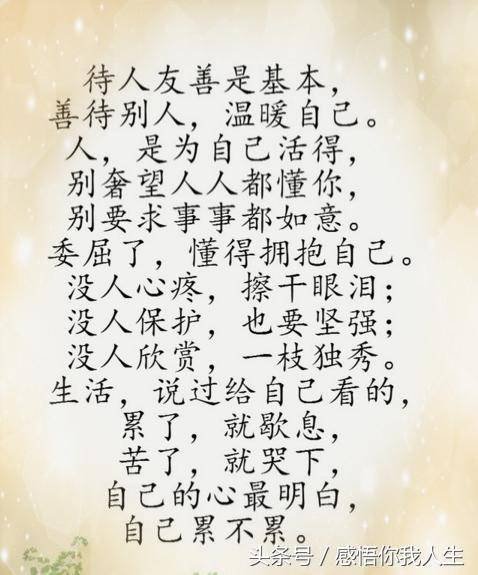 待人友善是基本，
善待别人，温暖自己。
人，是为自己活得，
别奢望人人都懂你，
别要求事事都如意。
委屈了，懂得拥抱自己。
没人心疼，擦干眼泪；
没人保护，也要坚强；
没人欣赏，一枝独秀。
生活，说过给自己看的，
累了，就歇息，
苦了，就哭下，
自己的心最明白，
自己累不累。
头条号 / 感悟你我人生